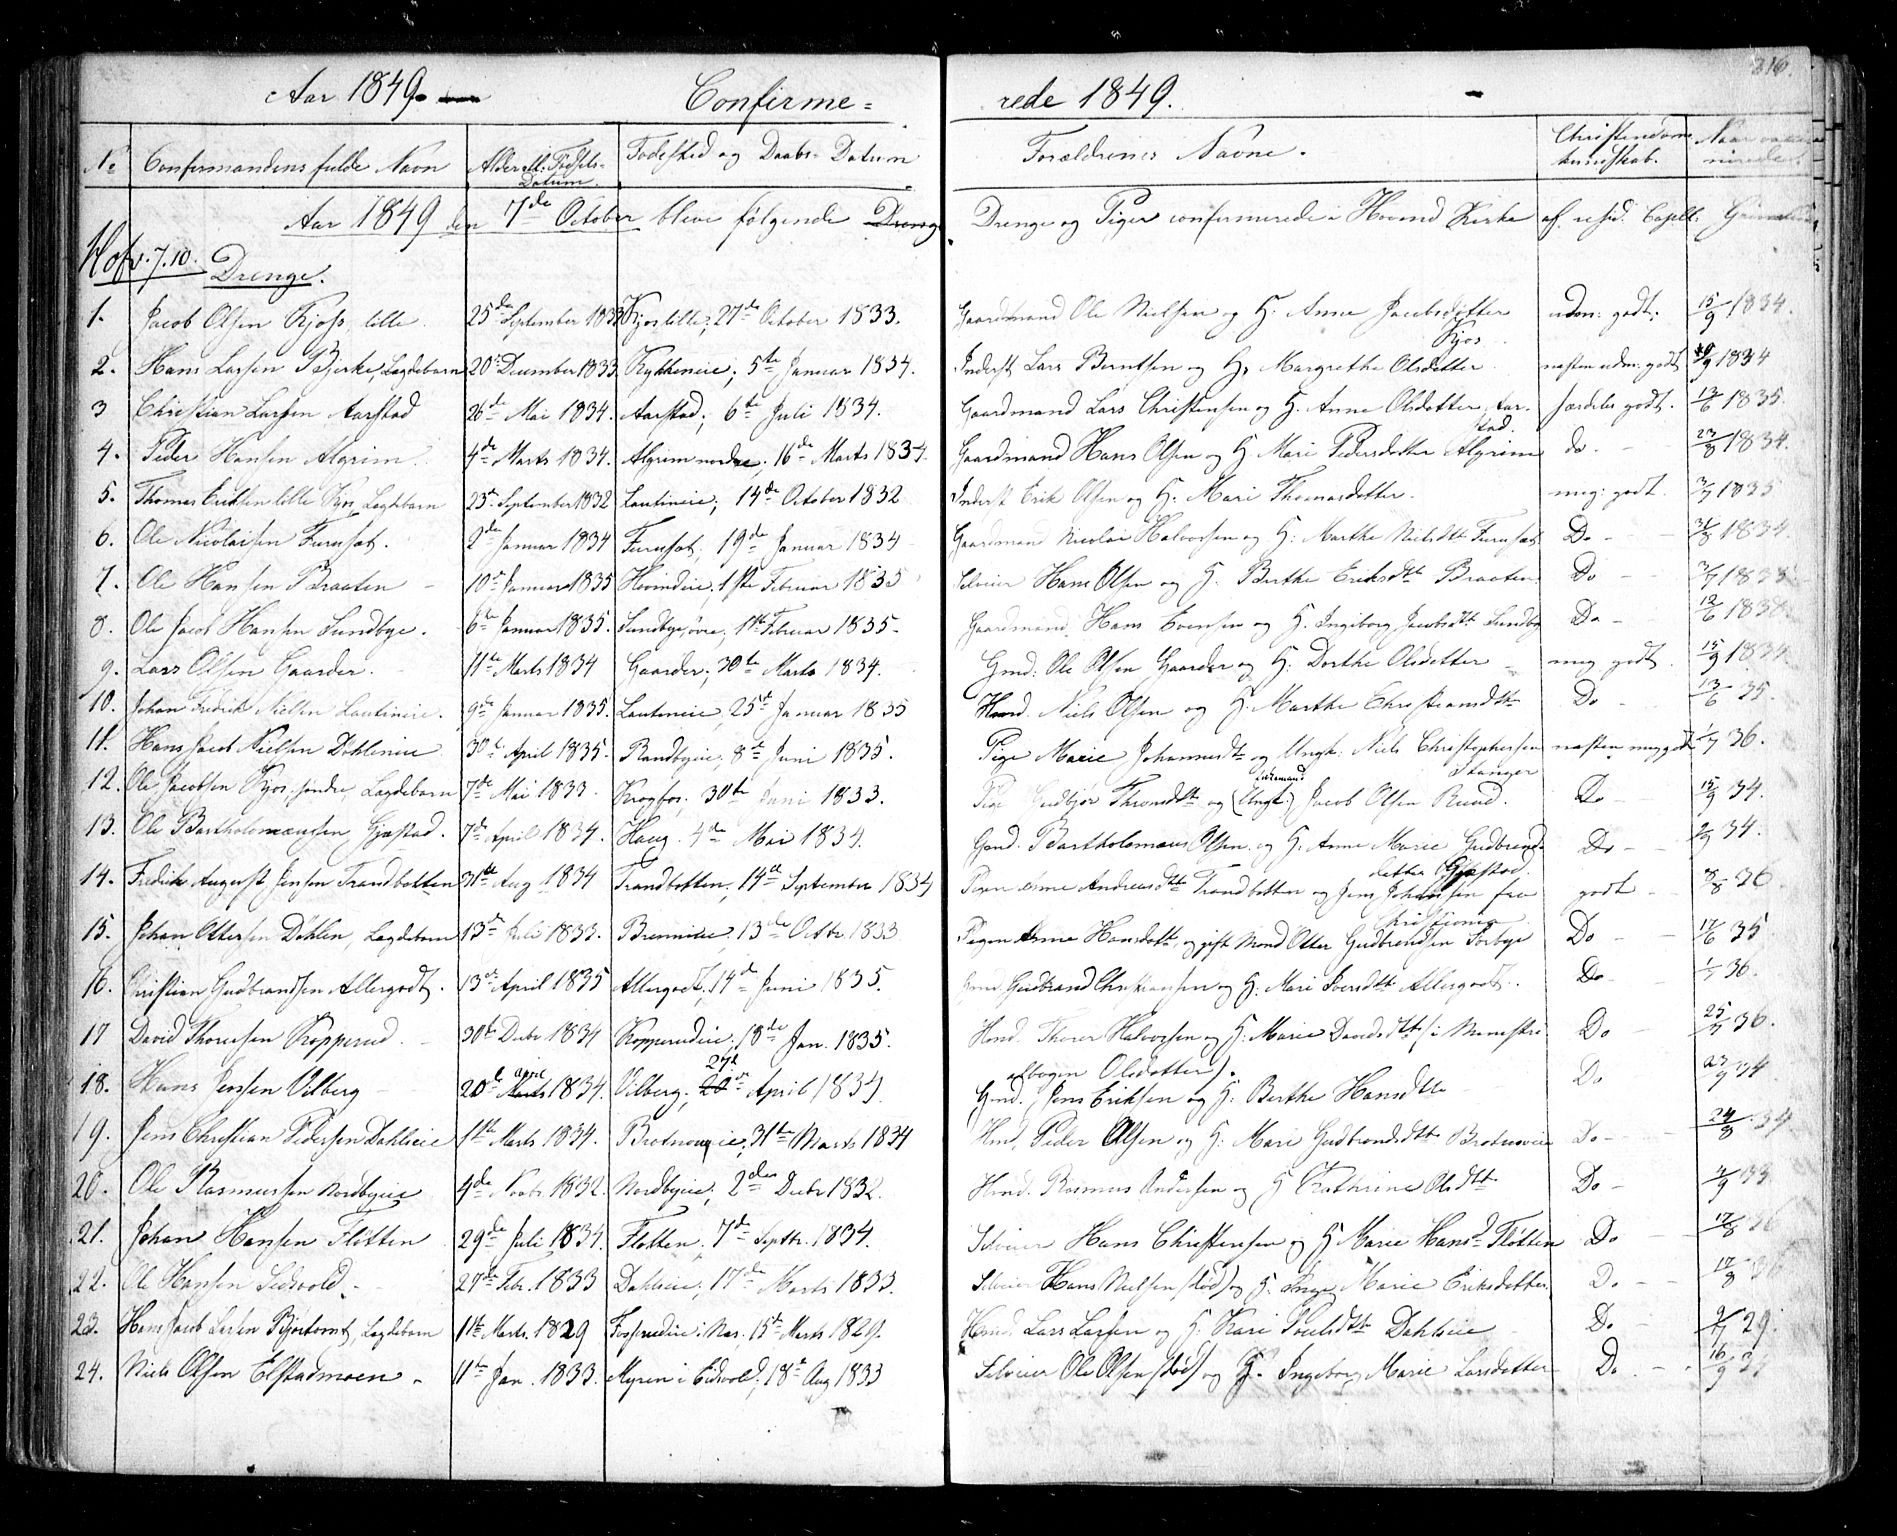 216.
Aar 1849. Confirme= rede 1849.
No Confirmandens fulde Navn Alder ell. Fødsels-Datum. Fødested og Daabs-Datum Forældrenes Navne. Christendoms kundskab. Naar vaccineret
Aar 1849 den 7de October bleve følgende Drenge Drenge og Piger confirmerede i Hovind Kirke af resid. Capell:
Hof v. 7.10. Drenge.
1. Jacob Olsen Kjos lille. 25de September 1833 Kjos lille; 27de October 1833. Gaardmand Ole Nielsen og H. Anne Jacobsdotter Kjos udm: godt. 15/9 1834.
2. Hans Larsen Bjerke, Lægdebarn 20de December 1833 Kykkeneie; 5te Januar 1834. Inderst Lars Berntsen og H. Margrethe Olsdotter næsten udm: godt /9 1834
3 Christian Larsen Aarstad 26de Mai 1834. Aarstad; 6te Juli 1834. Gaardmand Lars Christensen og H. Anne Olsdotter, Aarstad. særdeles godt. 13/6 1835.
4. Peder Hansen Algrim. 4de Marts 1834. Algrim nordre. 16de Marts 1834. Gaardmand Hans Olsen og H. Mari Pedersdotter Algrim do. 23/8 1834.
5. Thomas Eriksen lille Kjos, Lægdebarn 23de September 1832 Lautineie; 14de October 1832 Inderst Erik Olsen og H. Mari Thomasdotter. meg: godt. 3/7 1835
6. Ole Nicolaisen Furusæt. 2de Januar 1834 Furusæt. 19de Januar 1834 Gaardmand Nicolai Halvorsen og H. Marthe Nielsdtt Furusæt Do 31/8 1834
7. Ole Hansen Braaten 10de Januar 1835 Hovindeie; 1ste Februar 1835 Selveier Hans Olsen og H. Berthe Eriksdtt Braaten Do 3/7 1835
8. Ole Jacob Hansen Sundbye. 6te Januar 1835. Sundbye, øvre; 1ste Februar 1835. Gaardmand Hans Evensen og H. Ingeborg Jacobsdtt Sundby Do 12/6 183
9. Lars Olsen Gaarder. 11te Marts 1834 Gaarder; 30te Marts 1834. Gmd: Ole Olsen Gaarder og H. Dorthe Olsdotter meg godt. 15/9 1834
10. Johan Fredrik Nielsen Lautineie. 9de Januar 1835. Lautineie, 25de Januar 1835 Hmd. Niels Olsen og H. Marthe Christiansdtt Do 13/6 35.
11. Hans Jacob Nielsen Dahleneie 30te April 1835. Randbyeie, 8de Juni 1835. Pige Marie Johannesdtt og Ungk. Niels Christophersen Stanger næsten meg godt 1/7 36.
12. Ole Jacobsen Kjos, søndre, Lægdebarn 7de Mai 1833. Krogfos. 30te Juni 1833. Pige Gudbjør Throndsdtt og (Ungk.) Jacob Olsen Ruud. Do 15/9 34.
13. Ole Bartholomæussen Gjæstad. 7de April 1834. Haug. 4de Mai 1834. Gmd. Bartholomæus Olsen og H. Anne Marie Gudbrandsdotter Gjæstad. Do 34.
14. Fredrik August Jensen Trandbotten 31te Aug 1834 Trandbotten, 14de September 1834 Pigen Anne Andreasdtt Trandbotten og Jens Johansen fra Christiania godt 8/8 36.
15. Johan Ottersen Dahlen, Lægdebarn 13de Juli 1833. Brenneie. 13de Octbr. 1833 Pigen Anne Hansdtt og gift Mand Otter Gudbrandsen Sørbye Do 17/6 35
16. Christian Gudbrandsen Allergodt. 13de April 1835 Allergodt, 14de Juni 1835. Gmd. Gudbrand Christiansen og H. Mari Iversdtt Allergodt. Do 1/7 36.
17 David Thoresen Kopperud. 30te Decbr 1834 Kopperudeie; 18de Jan. 1835. Hmd. Thorer Halvorsen og H. Marie Davidsdtt (i Ministerialbogen Olsdotter). Do 25/7 36.
18. Hans Jensen Vilberg 20de Marts april 1834. Vilberg, 20de 27de April 1834 Gmd. Jens Eriksen og H. Berthe Hansdtt Do 23/9 34
19. Jens Christian Pedersen Dahleeie 1ste Marts 1834. Brotnoueie; 31te Marts 1834 Hmd. Peder Olsen og H. Mari Gudbrandsdtt Brotnoueie Do 24/8 34
20. Ole Rasmussen Nordbyeie 4de Novbr. 1832. Nordbyeie; 2den Decbr 1832. Hmd. Rasmus Andersen og H Cathrine Olsdtt Do 7/9 33
21. Johan Hansen Fløtten 29de Juli 1834. Fløtten, 7de Septbr. 1834. Selveier Hans Christensen og H Marie Hansd Fløtten Do 17/8 36
22. Ole Hansen Eidsvold. 27de Febr. 1833 Dahleeie; 17de Marts 1833. Selveier Hans Nielsen (død) og H. Inge Marie Eriksdotter Do 17/8
23. Hans Jacob Larsen Bjørtomt, Lægdebarn 11te Marts 1829 Fosserudeie i Næs. 15de Marts 1829. Hmd. Lars Larsen og H. Kari Poulsdtt Dahleeie Do 9/7 29.
24. Niels Olsen Elstadmoen. 11te Jan. 1833. Myren i Eidsvold; 18de Aug 1833 Selveier Ole Olsen (død) og H. Ingeborg Marie Larsdotter Do 16/9